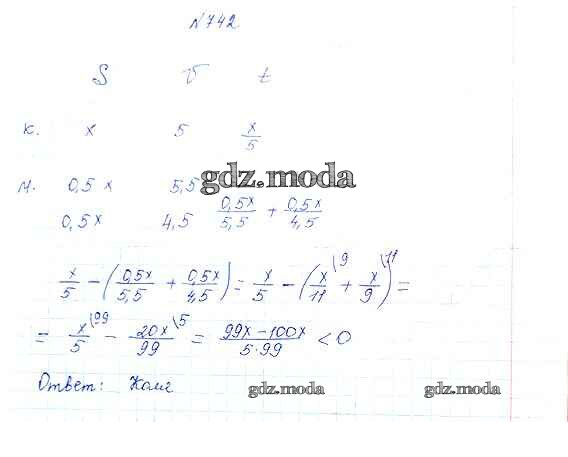 №742
S V t
К. x 5 x/5
М. 0,5x 5,5
gdz.moda
0,5x 4,5 0,5x/5,5 + 0,5x/4,5
x/5 − (0,5x/5,5 + 0,5x/4,5) = x/5 − (x/11 \9 + x/9 \11) =
= x/5 \99 − 20x/99 \5 = 99x−100x/5·99 < 0
Ответ: Коля
gdz.moda gdz.moda